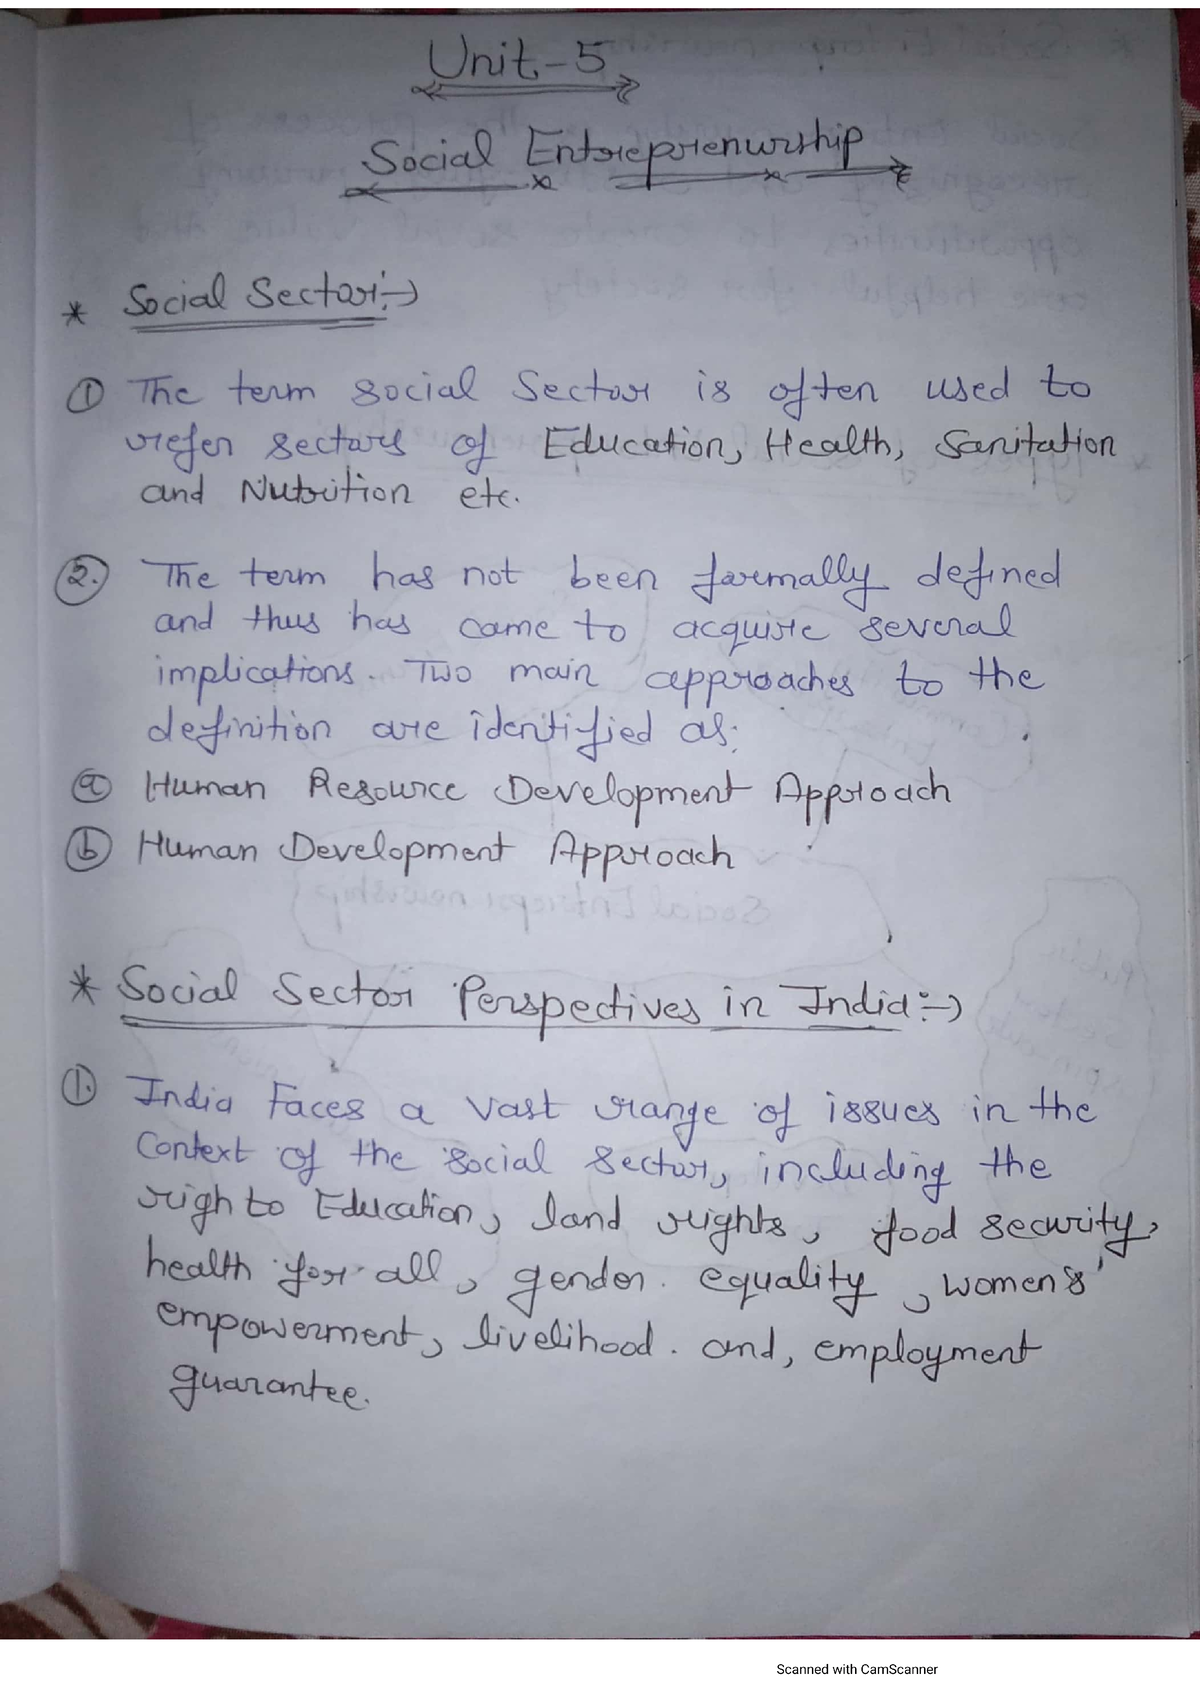 Unit-5
Social Entreprenurship
* Social Sector:→
① The term social Sector is often used to
refer sectors of Education, Health, Sanitation
and Nutrition etc.
②. The term has not been formally defined
and thus has came to acquire several
implications. Two main approaches to the
definition are identified as;
ⓐ Human Resource Development Approach
ⓑ Human Development Approach
* Social Sector Perspectives in India:→
①. India Faces a vast range of issues in the
Context of the social sector, including the
right to Education, land rights, food security,
health for all, gender equality, women's'
empowerment, livelihood. and, employment
guarantee.
Scanned with CamScanner